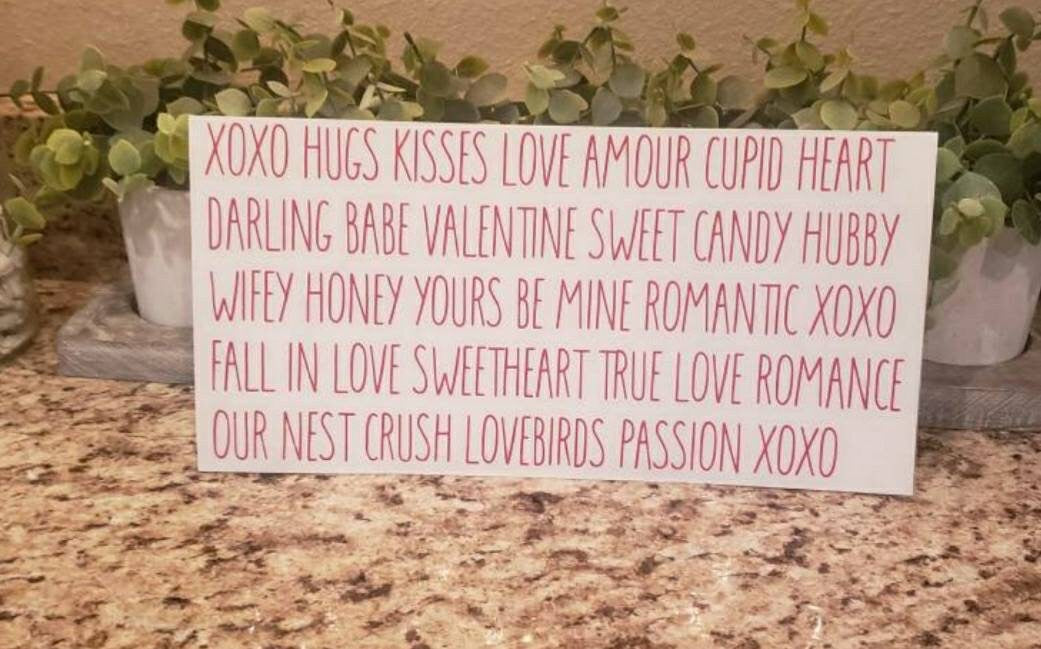 XOXO HUGS KISSES LOVE AMOUR CUPID HEART
DARLING BABE VALENTINE SWEET CANDY HUBBY
WIFEY HONEY YOURS BE MINE ROMANTIC XOXO
FALL IN LOVE SWEETHEART TRUE LOVE ROMANCE
OUR NEST CRUSH LOVEBIRDS PASSION XOXO